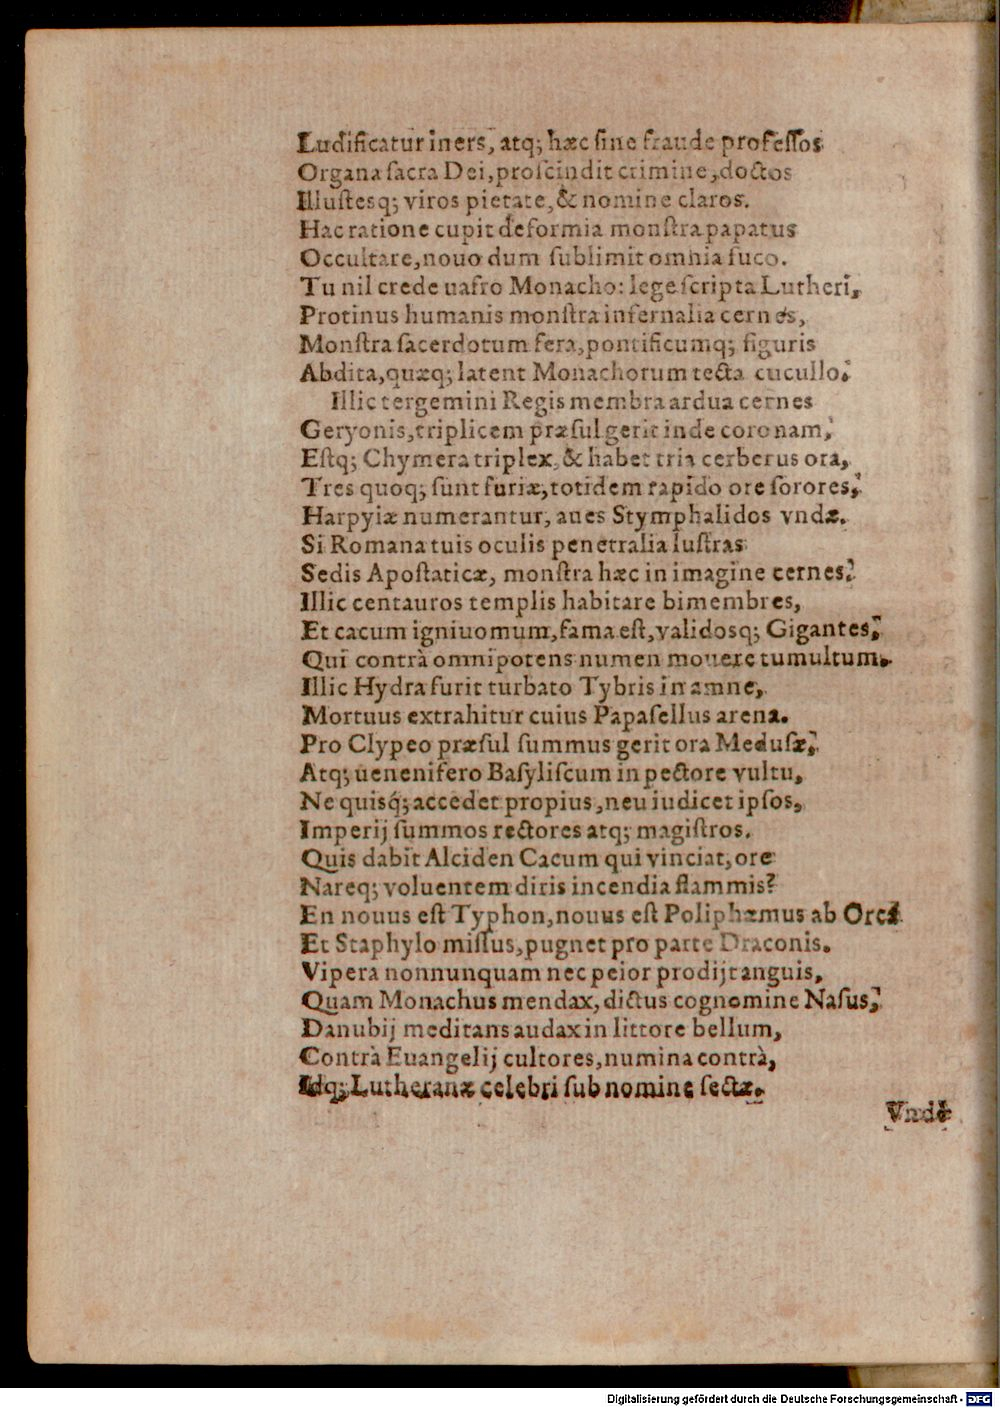 Ludificatur iners, atq; hæc ſine fraude profeſſos
Organa ſacra Dei, proſcindit crimine, doctos
Illuſtesq; viros pietate, & nomine claros.
Hac ratione cupit deformia monſtra papatus
Occultare, nouo dum ſublimit omnia fuco.
Tu nil crede uafro Monacho: lege ſcripta Lutheri,
Protinus humanis monſtra infernalia cernes,
Monſtra ſacerdotum fera, pontificumq; figuris
Abdita, quæq; latent Monachorum tecta cucullo.
Illic tergemini Regis membra ardua cernes
Geryonis, triplicem præſul gerit inde coronam,
Eſtq; Chymera triplex, & habet tria cerberus ora,
Tres quoq; ſunt furiæ, totidem rapido ore ſorores,
Harpyiæ numerantur, aues Stymphalidos vndæ.
Si Romana tuis oculis penetralia luſtras
Sedis Apoſtaticæ, monſtra hæc in imagine cernes.
Illic centauros templis habitare bimembres,
Et cacum igniuomum, fama eſt, validosq; Gigantes,
Qui contrà omnipotens numen mouere tumultum.
Illic Hydra furit turbato Tybris in amne,
Mortuus extrahitur cuius Papaſellus arena.
Pro Clypeo præſul ſummus gerit ora Meduſæ,
Atq; uenenifero Baſyliſcum in pectore vultu,
Ne quisq́; accedet propius, neu iudicet ipſos,
Imperij ſummos rectores atq; magiſtros.
Quis dabit Alciden Cacum qui vinciat, ore
Nareq; voluentem diris incendia flammis?
En nouus eſt Typhon, nouus eſt Poliphæmus ab
Et Staphylo miſſus, pugnet pro parte Draconis.
Vipera nonnunquam nec peior prodijt anguis,
Quam Monachus mendax, dictus cognomine Naſus,
Danubij meditans audax in littore bellum,
Contrà Euangelij cultores, numina contrà,
Idq; Lutheranæ celebri ſub nomine ſectæ.
Vndè
Digitalisierung gefördert durch die Deutsche Forschungsgemeinschaft - DFG